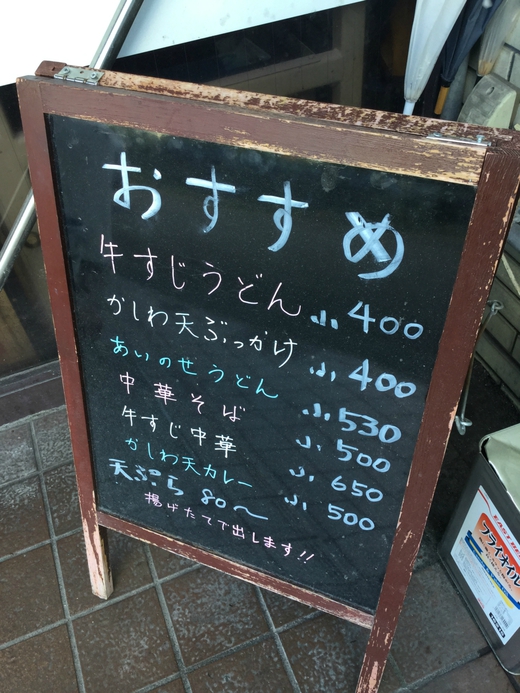 おすすめ
牛すじうどん 小 400
かしわ天ぶっかけ 小 400
あいのせうどん 小 530
中華そば 小 500
牛すじ中華 小 650
かしわ天カレー 小 500
天ぷら 80〜
揚げたてで出します!!
フライオイル